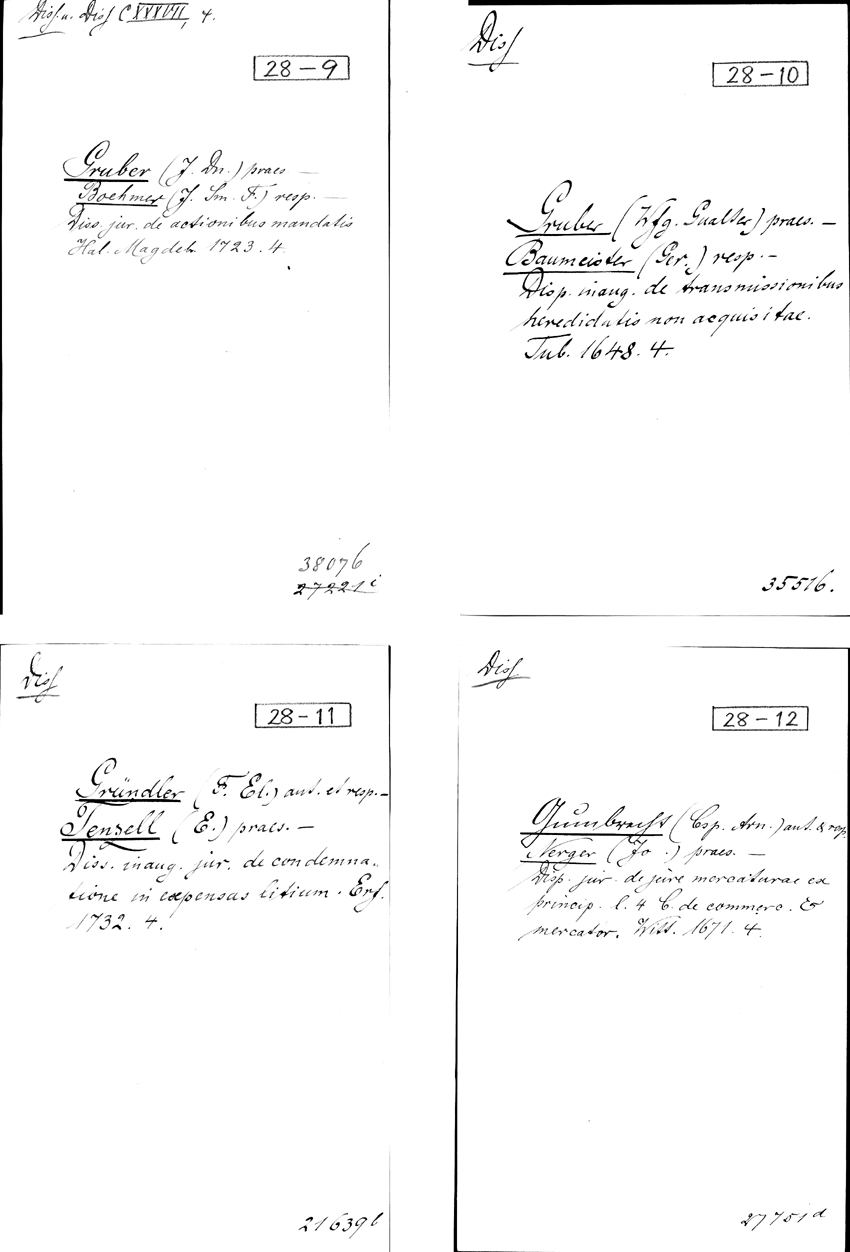 Diss. u. Diss CXXXVII, 4.
28-9
Gruber (J. Dn.) praes —
Boehmer (J. Sm. F.) resp. —
Diss. jur. de actionibus mandatis
Hal. Magdeb. 1723. 4.
38076
27221 i
Diss
28-10
Gruber (Wfg. Gualter) praes. —
Baumeister (Ger.) resp. —
Disp. inaug. de transmissionibus
heredidatis non acquisitae.
Tub. 1648. 4.
35516.
Diss
28-11
Gründler (F. El.) aut. et resp. —
Tenzell (E.) praes. —
Diss. inaug. jur. de condemna-
tione in expensas litium. Erf.
1732. 4.
21639 b
Diss
28-12
Gumbrecht (Csp. Arn.) aut. & resp.
Nerger (Jo.) praes. —
Disp. jur. de jure mercaturae ex
princip. l. 4 C. de commerc. &
mercator. Witt. 1671. 4.
27751 d